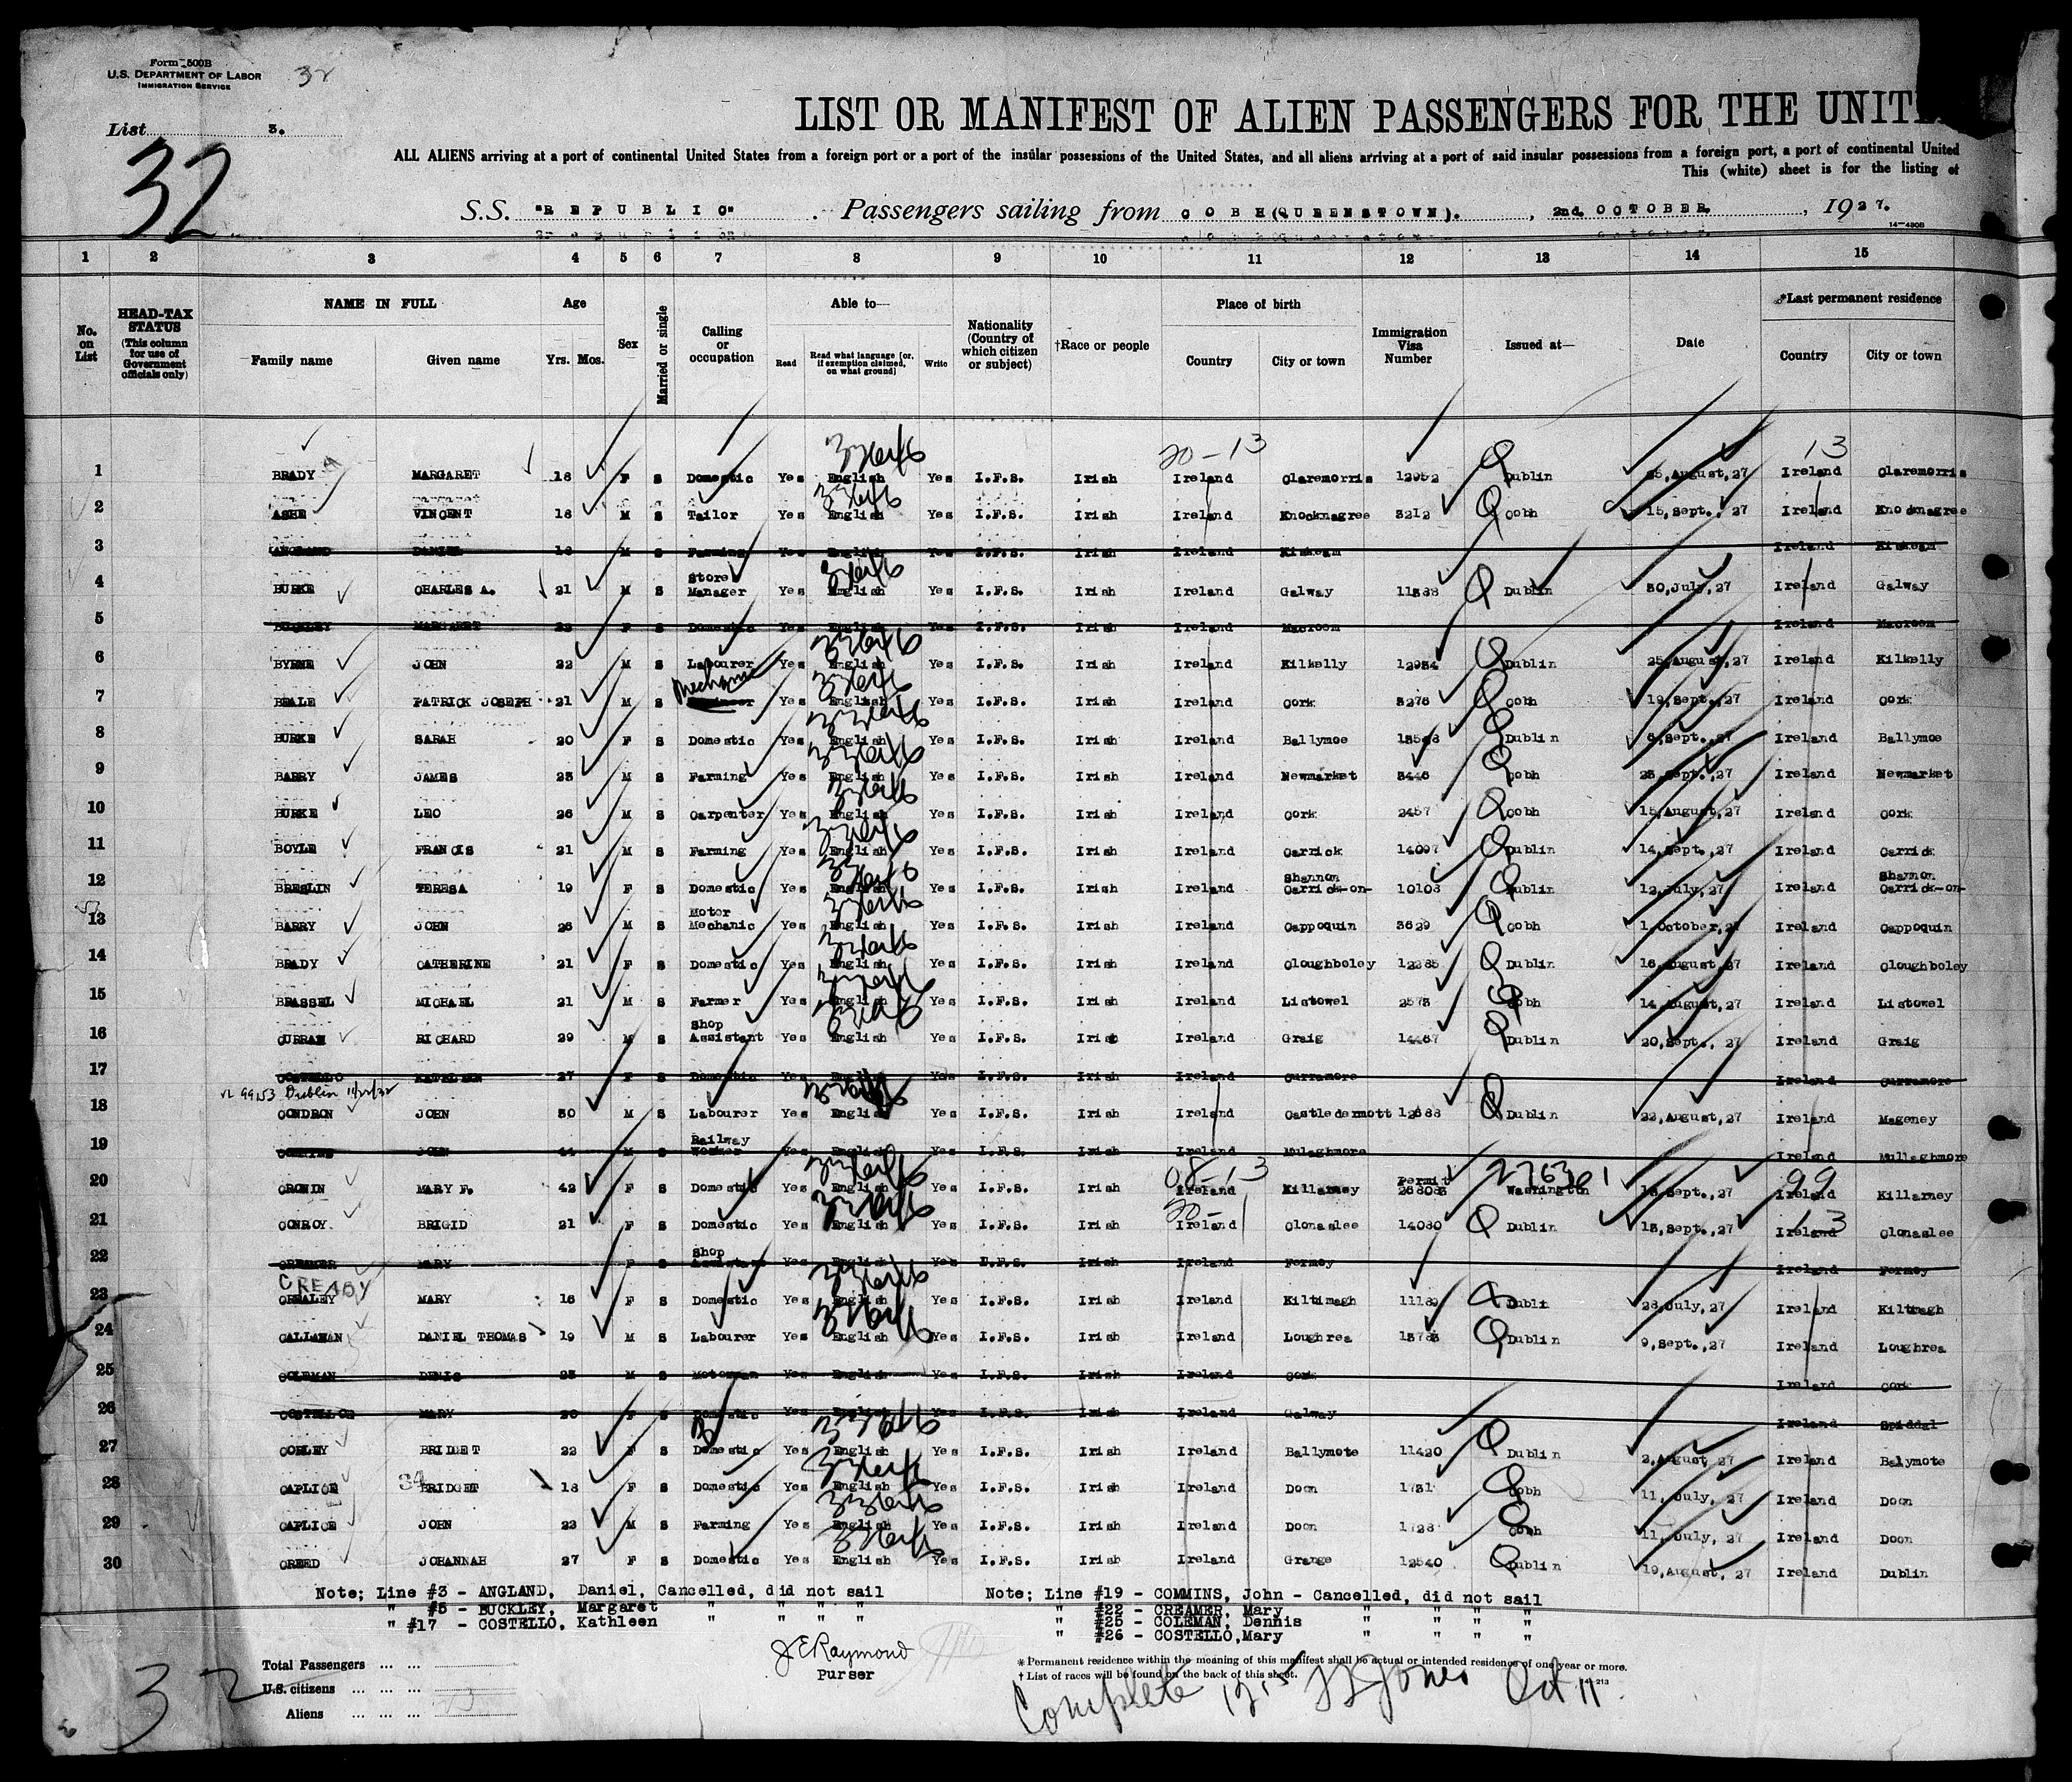 Form 500B
U.S. DEPARTMENT OF LABOR
IMMIGRATION SERVICE
32
List 3.
32
LIST OR MANIFEST OF ALIEN PASSENGERS FOR THE UNIT
ALL ALIENS arriving at a port of continental United States from a foreign port or a port of the insular possessions of the United States, and all aliens arriving at a port of said insular possessions from a foreign port, a port of continental United
This (white) sheet is for the listing of
S.S. "REPUBLIC" Passengers sailing from COBH(QUEENSTOWN). , 2nd. OCTOBER. , 1927.
14-430B
1 2 3 4 5 6 7 8 9 10 11 12 13 14 15
No. on List
HEAD-TAX STATUS (This column for use of Government officials only)
NAME IN FULL Family name Given name
Age Yrs. Mos.
Sex
Married or single
Calling or occupation
Able to— Read Read what language (or, if exemption claimed, on what ground) Write
Nationality (Country of which citizen or subject)
†Race or people
Place of birth Country City or town
Immigration Visa Number
Issued at—
Date
*Last permanent residence Country City or town
20-13 13
1 BRADY MARGARET 18 F S Domestic Yes English Yes I.F.S. Irish Ireland Claremorris 12952 Dublin 25,August,27 Ireland Claremorris
2 ASHE VINCENT 18 M S Tailor Yes English Yes I.F.S. Irish Ireland Knocknagree 3212 Cobh 15,Sept.,27 Ireland Knocknagree
3 ANGLAND DANIEL 18 M S Farming Yes English Yes I.F.S. Irish Ireland Kiskeam Ireland Kiskeam
4 BURKE CHARLES A. 21 M S Store Manager Yes English Yes I.F.S. Irish Ireland Galway 11388 Dublin 30,July,27 Ireland Galway
5 BUCKLEY MARGARET 23 F S Domestic Yes English Yes I.F.S. Irish Ireland Macroom Ireland Macroom
6 BYRNE JOHN 22 M S Labourer Yes English Yes I.F.S. Irish Ireland Kilkelly 12934 Dublin 25,August,27 Ireland Kilkelly
7 BEALE PATRICK JOSEPH 21 M S Mechanic Yes English Yes I.F.S. Irish Ireland Cork 3276 Cobh 19,Sept.,27 Ireland Cork
8 BURKE SARAH 20 F S Domestic Yes English Yes I.F.S. Irish Ireland Ballymoe Dublin 6,Sept.,27 Ireland Ballymoe
9 BARRY JAMES 23 M S Farming Yes English Yes I.F.S. Irish Ireland Newmarket 3446 Cobh 23,Sept.,27 Ireland Newmarket
10 BURKE LEO 26 M S Carpenter Yes English Yes I.F.S. Irish Ireland Cork 2457 Cobh 15,August,27 Ireland Cork
11 BOYLE FRANCIS 21 M S Farming Yes English Yes I.F.S. Irish Ireland Carrick 14097 Dublin 14,Sept.,27 Ireland Carrick
12 BRESLIN TERESA 19 F S Domestic Yes English Yes I.F.S. Irish Ireland Carrick-on-Shannon 10103 Dublin 12,July,27 Ireland Carrick-on-Shannon
13 BARRY JOHN 26 M S Motor Mechanic Yes English Yes I.F.S. Irish Ireland Cappoquin 3629 Cobh 1,October,27 Ireland Cappoquin
14 BRADY CATHERINE 21 F S Domestic Yes English Yes I.F.S. Irish Ireland Cloughboley 12285 Dublin 16,August,27 Ireland Cloughboley
15 BRASSEL MICHAEL 21 M S Farmer Yes English Yes I.F.S. Irish Ireland Listowel 2373 Cobh 14,August,27 Ireland Listowel
16 CURRAN RICHARD 29 M S Shop Assistant Yes English Yes I.F.S. Irish Ireland Graig 14467 Dublin 20,Sept., 27 Ireland Graig
17 COSTELLO KATHLEEN 27 F S Domestic Yes English Yes I.F.S. Irish Ireland Curramore Ireland Curramore
Dublin
18 CONDRON JOHN 30 M S Labourer Yes English Yes I.F.S. Irish Ireland Castledermott 12688 Dublin 22,August,27 Ireland Mageney
19 COMMINS JOHN 44 M S Railway Worker Yes English Yes I.F.S. Irish Ireland Mulaghmore Ireland Mullaghmore
08-13 276301 99
20 CRONIN MARY F. 42 F S Domestic Yes English Yes I.F.S. Irish Ireland Killarney Permit Washington Sept.,27 Killarney
20-1 13
21 CONROY BRIGID 21 F S Domestic Yes English Yes I.F.S. Irish Ireland Clonaslee 14030 Dublin 13,Sept.,27 Ireland Clonaslee
22 CREAMER MARY F S Shop Assistant Yes English Yes I.F.S. Irish Ireland Fermoy Ireland Fermoy
CREADY
23 CREALEY MARY 16 F S Domestic Yes English Yes I.F.S. Irish Ireland Kiltimagh 11182 Dublin 28,July,27 Ireland Kiltmagh
24 CALLAHAN DANIEL THOMAS 19 M S Labourer Yes English Yes I.F.S. Irish Ireland Loughrea 13783 Dublin 9,Sept.,27 Ireland Loughrea
25 COLEMAN DENIS 23 M S Motorman Yes English Yes I.F.S. Irish Ireland Cork Ireland Cork
26 COSTELLOE MARY 20 F S Domestic Yes English Yes I.F.S. Irish Ireland Galway Ireland Spiddal
27 CORLEY BRIDGET 22 F S Domestic Yes English Yes I.F.S. Irish Ireland Ballymote 11420 Dublin 2,August,27 Ireland Balymote
28 CAPLICE BRIDGET 18 F S Domestic Yes English Yes I.F.S. Irish Ireland Doon 1731 Cobh 11,July, 27 Ireland Doon
29 CAPLICE JOHN 23 M S Farming Yes English Yes I.F.S. Irish Ireland Doon 1728 Cobh 11,July, 27 Ireland Doon
30 CREED JOHANNAH 27 F S Domestic Yes English Yes I.F.S. Irish Ireland Grange 12540 Dublin 19,August, 27 Ireland Dublin
Note; Line #3 - ANGLAND, Daniel, Cancelled, did not sail
" #5 - BUCKLEY, Margaret " " " "
" #17 - COSTELLO, Kathleen " " " "
Note; Line #19 - COMMINS, John - Cancelled, did not sail
" #22 - CREAMER, Mary " " " "
" #25 - COLEMAN, Dennis " " " "
" #26 - COSTELLO,Mary " " " "
J E Raymond
Purser
Total Passengers ... ...
U.S. citizens ... ... ...
Aliens ... ... ...
32
* Permanent residence within the meaning of this manifest shall be actual or intended residence of one year or more.
† List of races will be found on the back of this sheet.
Complete Jones Oct 11